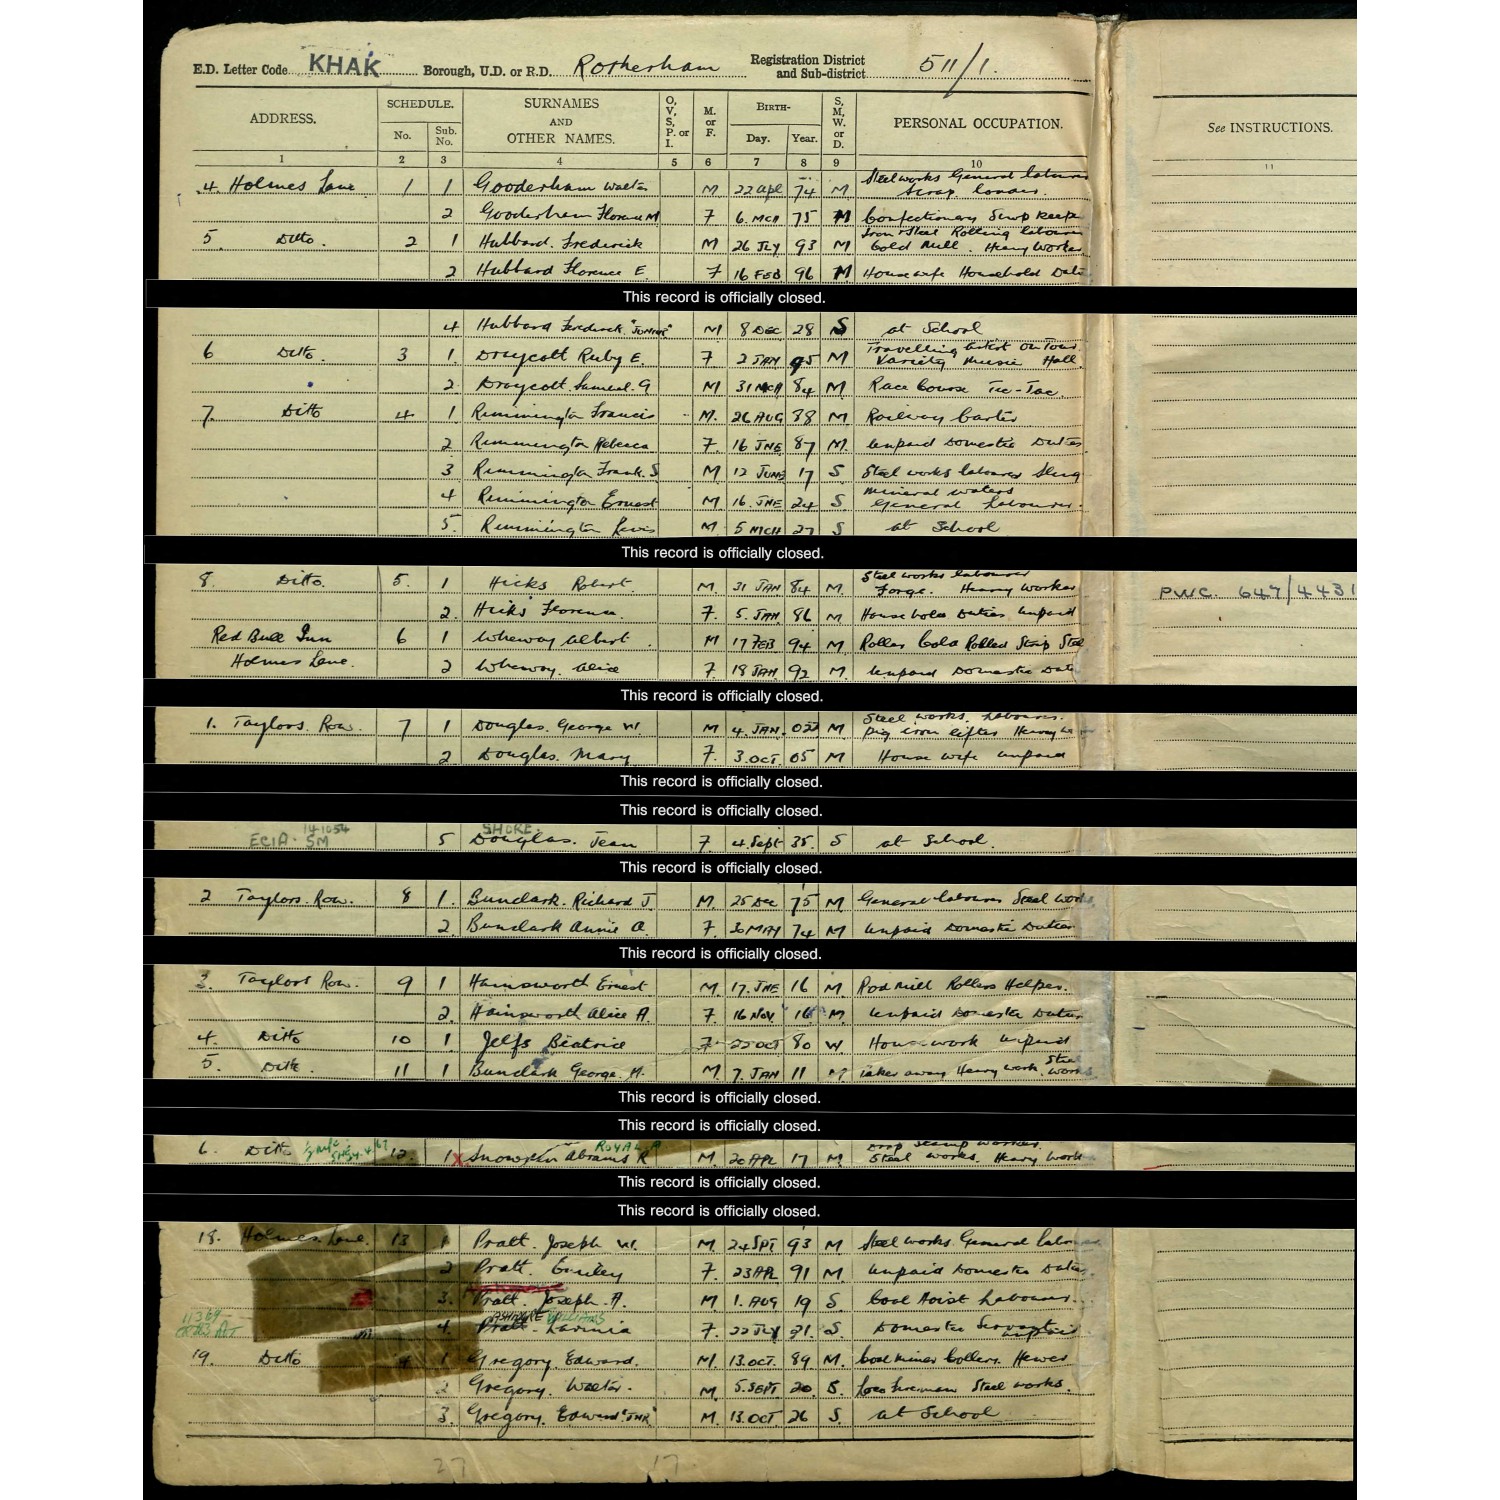 E.D. Letter Code KHAK Borough, U.D. or R.D. Rotherham Registration District and Sub-district 511/1.
ADDRESS. SCHEDULE. No. Sub. No. SURNAMES AND OTHER NAMES. O, V, S, P. or I. M. or F. BIRTH- Day. Year. S, M, W. or D. PERSONAL OCCUPATION. See INSTRUCTIONS.
1 2 3 4 5 6 7 8 9 10 11
4 Holmes Lane 1 1 Gooderham Walter M 22 APL 74 M Steelworks General Labourer Scrap loader.
2 Gooderham Florence M F 6. MCH 75 M Confectionery Shop Keeper
5 Ditto. 2 1 Hubbard. Frederick M 26 JLY 93 M Iron & Steel Rolling labourer Cold Mill. Heavy Worker
2 Hubbard Florence E. F 16 FEB 96 M Housewife Household Duties
This record is officially closed.
4 Hubbard Frederick "JUNIOR" M 8 DEC 28 S at School
6 Ditto. 3 1. Draycott Ruby E. F 2 JAN 95 M Travelling Artist on Tour. Variety Music Hall
2. Draycott. Samuel. G M 31 MCH 84 M Race Course Tic-Tac
7. Ditto 4 1 Rimmington Francis M. 26 AUG 88 M Railway Carter
2 Rimmington Rebecca F. 16 JNE 87 M. Unpaid Domestic Duties
3 Rimmington Frank. S M 12 JUNE 17 S Steel works labourer
4 Rimmington Ernest M. 16. JNE 24 S. Mineral waters General Labourer.
5. Rimmington M. 5 MCH 27 S at School
This record is officially closed.
8. Ditto. 5. 1 Hicks Robert. M. 31 JAN 84 M. Steel works labourer Forge. Heavy Worker PWC. 647/4431
2. Hicks Florence. F. 5. JAN 86 M Household Duties unpaid
Red Bull Inn 6 1 Wheway Albert M 17 FEB 94 M Roller Cold Rolled Strip Steel
Holmes Lane. 2 Wheway. Alice F. 18 JAN 92 M. Unpaid Domestic Duties
This record is officially closed.
1. Taylors. Row. 7 1 Douglas. George W. M 4. JAN. M Steel works. Labourer. Pig iron lifter Heavy
2 Douglas. Mary F. 3. OCT. 05 M House wife unpaid
This record is officially closed.
This record is officially closed.
ECIA. SM 141054 5 SHORE. Douglas. Jean F. 4 Sept 35. S at School.
This record is officially closed.
2 Taylors. Row. 8 1. Bunclark. Richard J. M. 25 Dec 75 M General labourer Steel works
2 Bunclark Annie A. F. 30 MAY 74 M Unpaid Domestic Duties
This record is officially closed.
3. Taylors Row. 9 1 Hainsworth Ernest M. 17. JNE 16 M Rod Mill Rollers Helper.
2. Hainsworth Alice A. F 16 Nov 16 M. Unpaid Domestic Duties
4. Ditto 10 1. Jelfs Beatrice F. 22 OCT 80 W. Housework unpaid
5. Ditto. 11 1 Bunclark George. H. M. 7. JAN 11 M. Taker away Heavy work. Steel works
This record is officially closed.
This record is officially closed.
6. Ditto 12. 1 Snowden Abrams R ROYAL A M. 20 APL 17 M Drop Stamp worker. Steel works. Heavy work
This record is officially closed.
This record is officially closed.
18. Holmes Lane. 13 1 Pratt. Joseph W. M. 24 SPT 93 M Steel works General labourer
2 Pratt. Emiley F. 23 APL 91 M. Unpaid Domestic Duties.
3. Pratt. Joseph. A. M 1. AUG 19 S. Coal Hoist Labourer.
11369 4. Pratt. Lavinia WILLIAMS F. 22 JLY 21. S. Domestic Servant unpaid
19. Ditto 14 1 Gregory. Edward. M. 13. OCT. 89 M. Coal miner Colliery. Hewer
2 Gregory. Walter. M. 5. SEPT. 20 S. Loco fireman Steel works.
3. Gregory. Edward "JNR" M. 13. OCT 26 S. at School
27 17